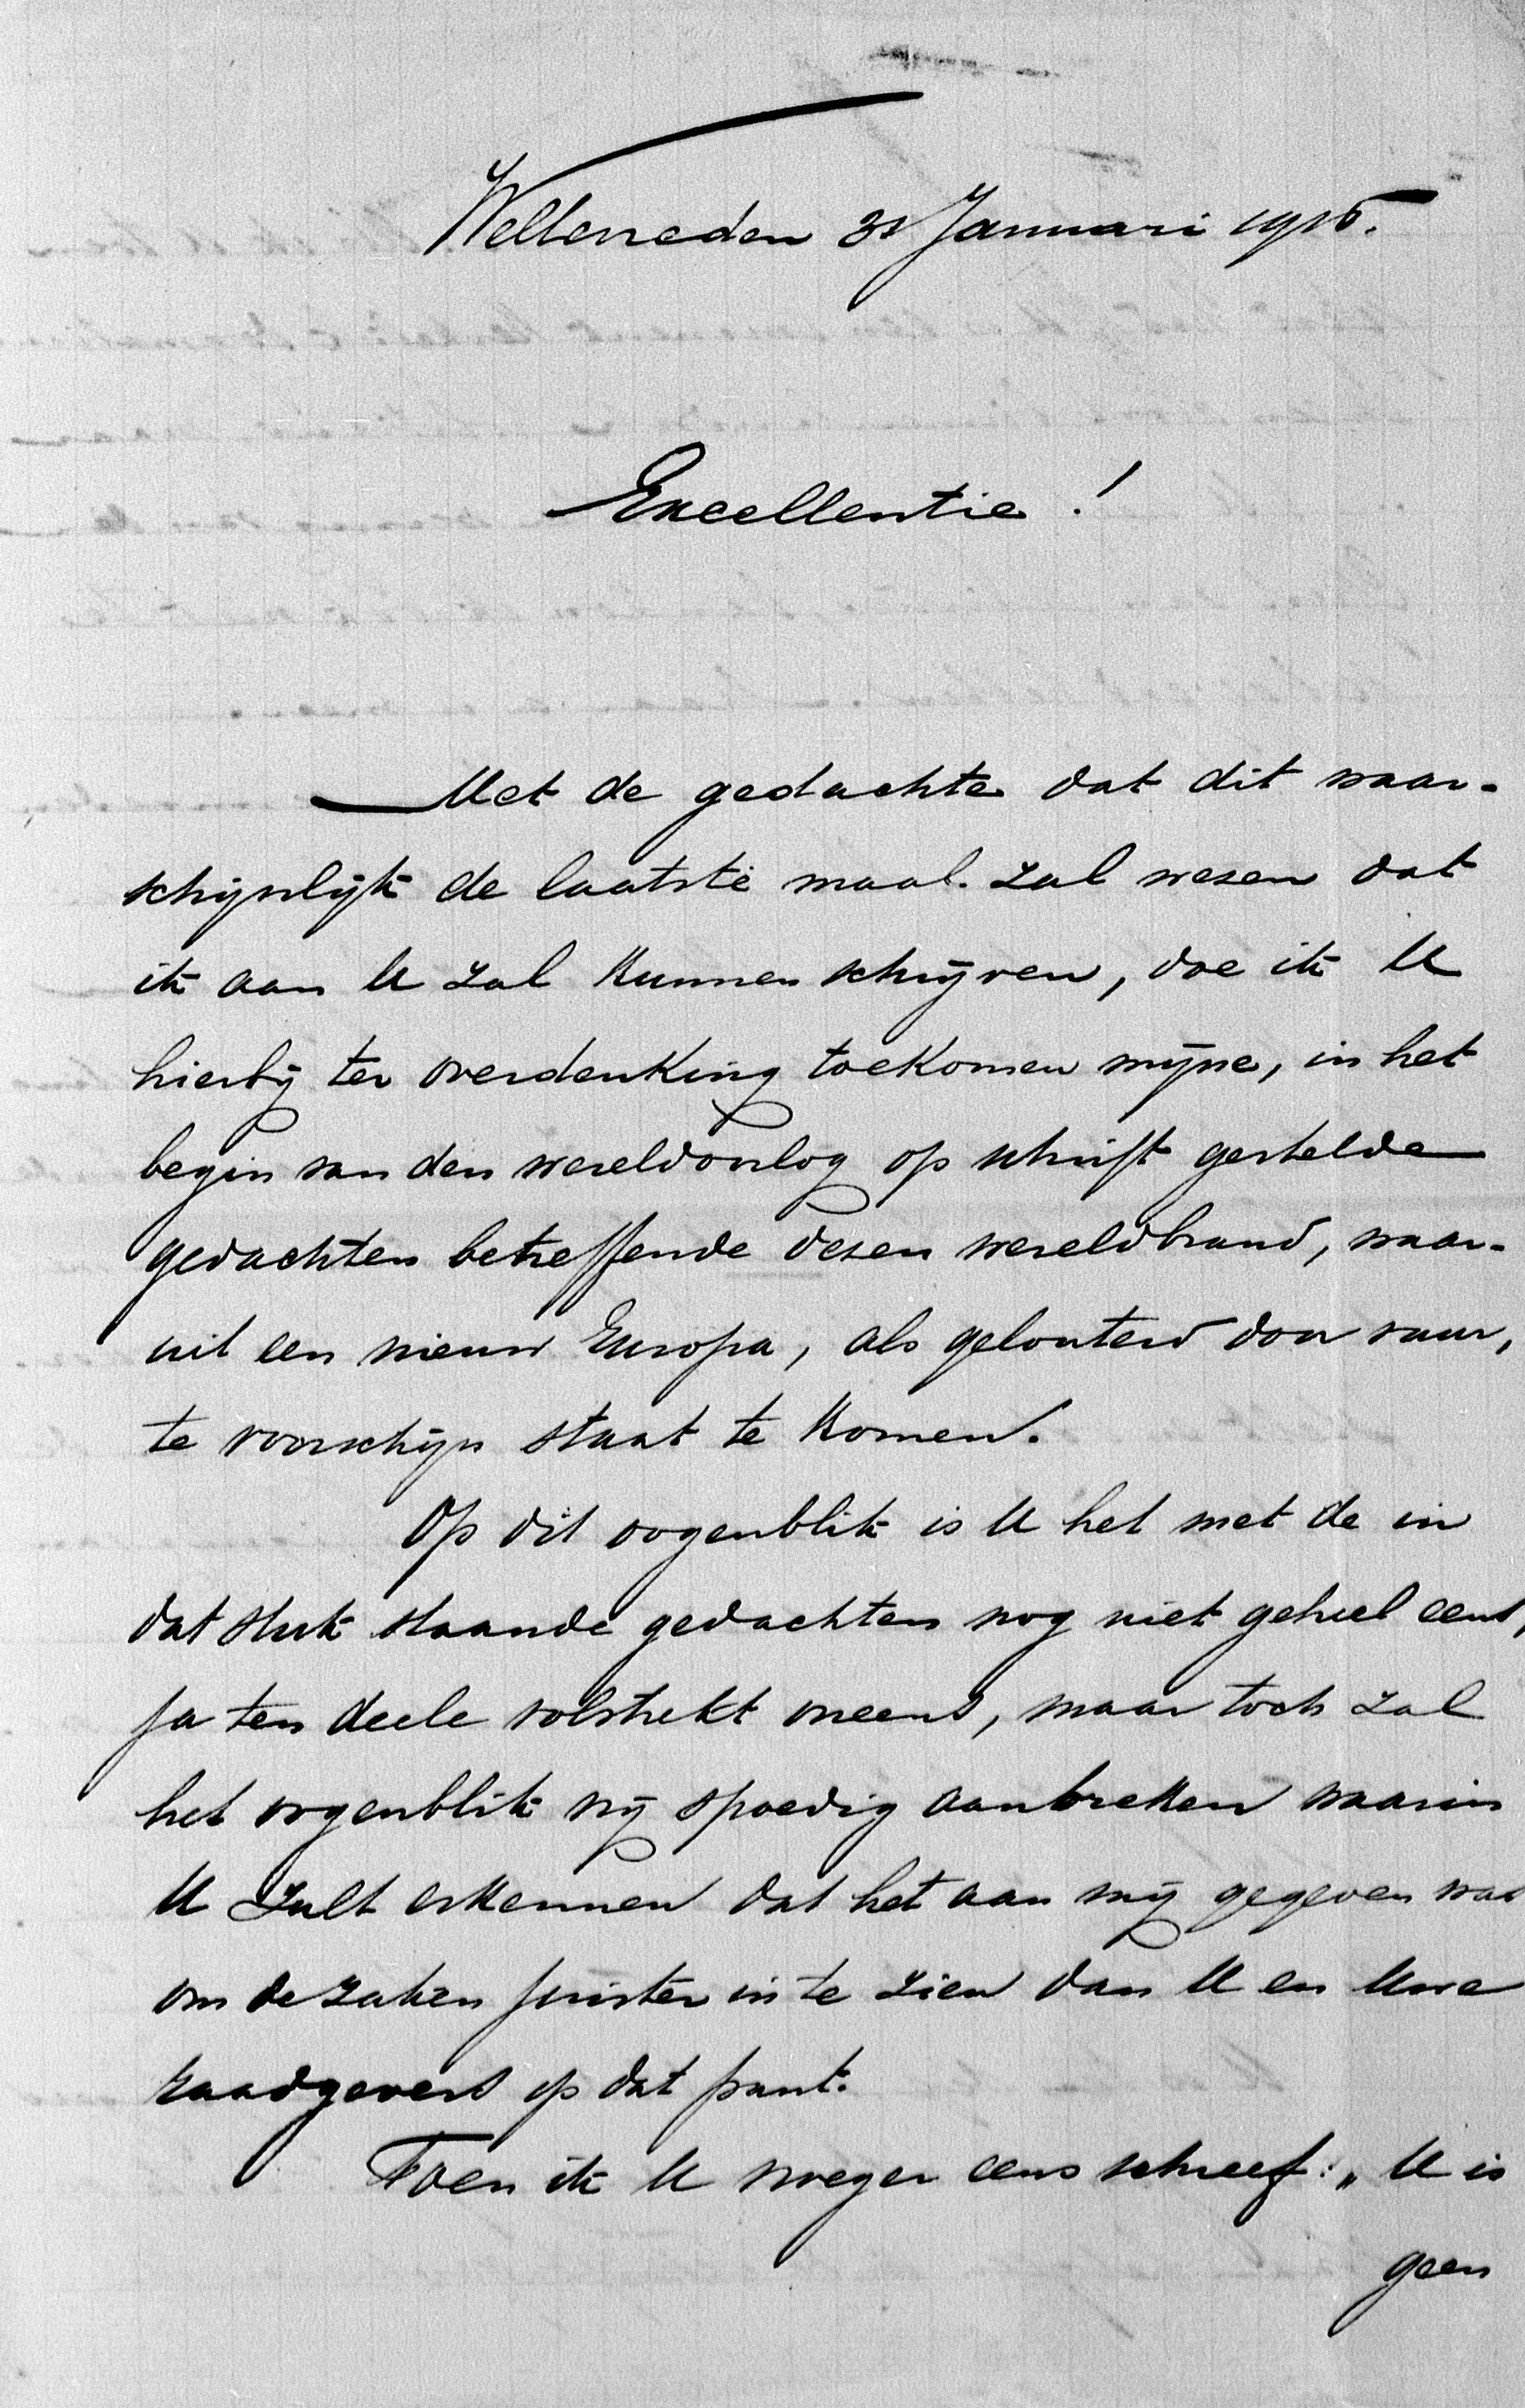 Weltevreden 31 Januari 1916.
Excellentie!
Met de gedachte dat dit waar-
schijnlijk de laatste maal zal wezen dat
ik aan U zal kunnen schrijven, doe ik U
hierbij ter overdenking toekomen mijne, in het
begin van den wereldoorlog op schrift gestelde
gedachten betreffende dezen wereldbrand, waar-
uit een nieuw Europa, als gelouterd door vuur,
te voorschijn staat te komen.
Op dit oogenblik is U het met de in
dat stuk staande gedachten nog niet geheel eens,
ja ten deele volstrekt oneens, maar toch zal
het oogenblik vrij spoedig aanbreken waarin
U zult erkennen dat het aan mij gegeven was
om de zaken juister in te zien dan U en Uwe
raadgevers op dat punt.
Toen ik U vroeger eens schreef: „U is
geen